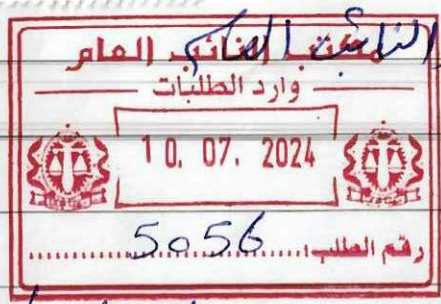 النائب العام
مكتب النائب العام
وارد الطلبات
10. 07. 2024
رقم الطلب: 5056